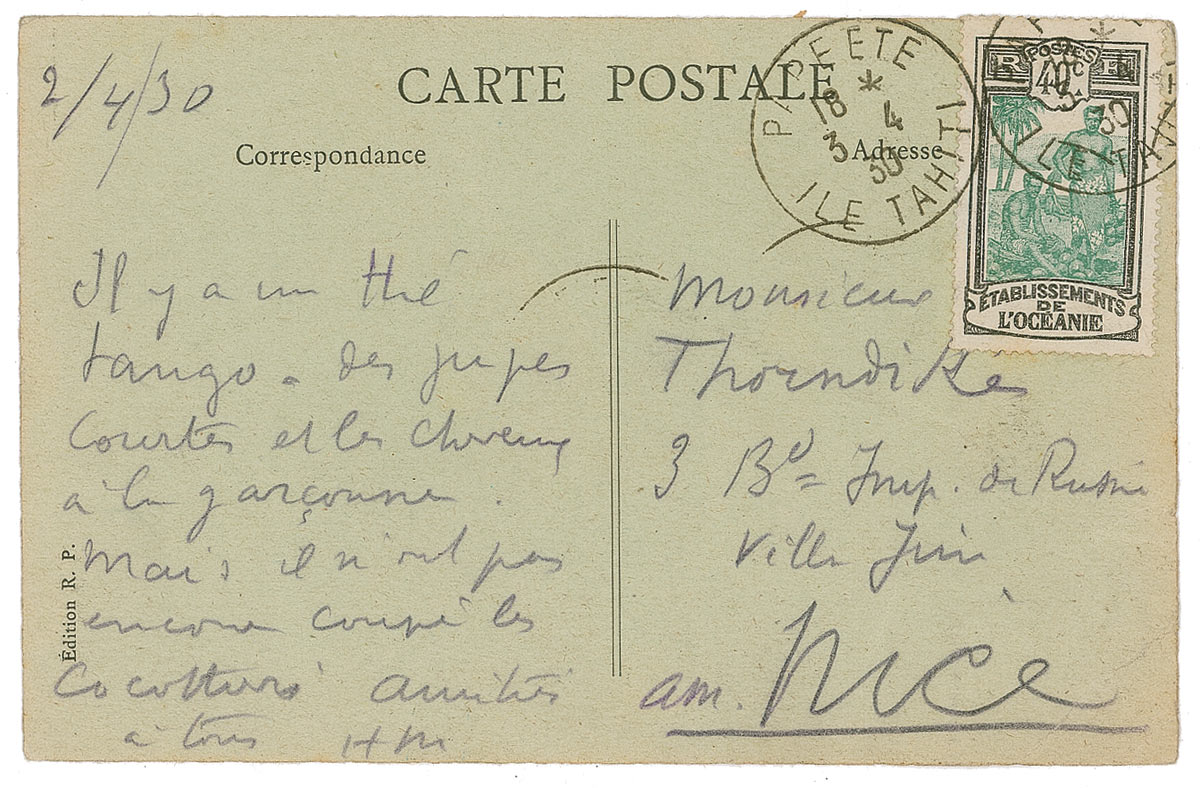 2/4/30
CARTE POSTALE
Correspondance
Adresse
PAPEETE
18 * 4
3 30
ILE TAHITI
POSTES
R F
40c
30
ILE TAHITI
ÉTABLISSEMENTS
DE
L'OCÉANIE
Il y a un thé
tango - des jupes
courtes et les cheveux
à la garçonne.
Mais il n'ont pas
encore coupé les
cocottiers amitiés
à tous HM
Monsieur
Thorndike
3 Bd = Imp. de Russie
Villa
am. Nice
Édition R. P.